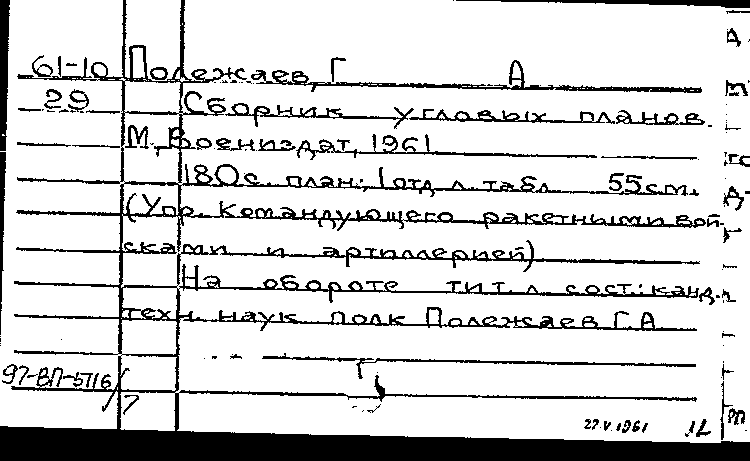 61-10 Полежаев, Г А
29 Сборник угловых планов.
М, Воениздат, 1961
180с. план; 1 отд л табл 55см.
(Упр. Командующего ракетными вой-
сками и артиллерией)
На обороте тит. л сост: канд.
техн. наук полк Полежаев Г.А
97-ВП-5716
27.V.1961 12